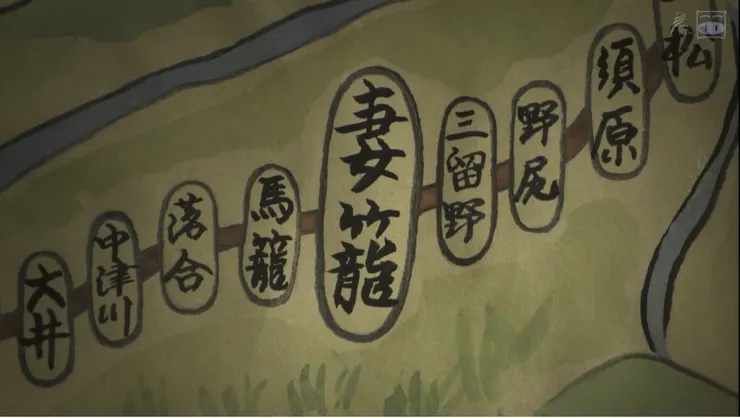 松
須原
野尻
三留野
妻籠
馬籠
落合
中津川
大井